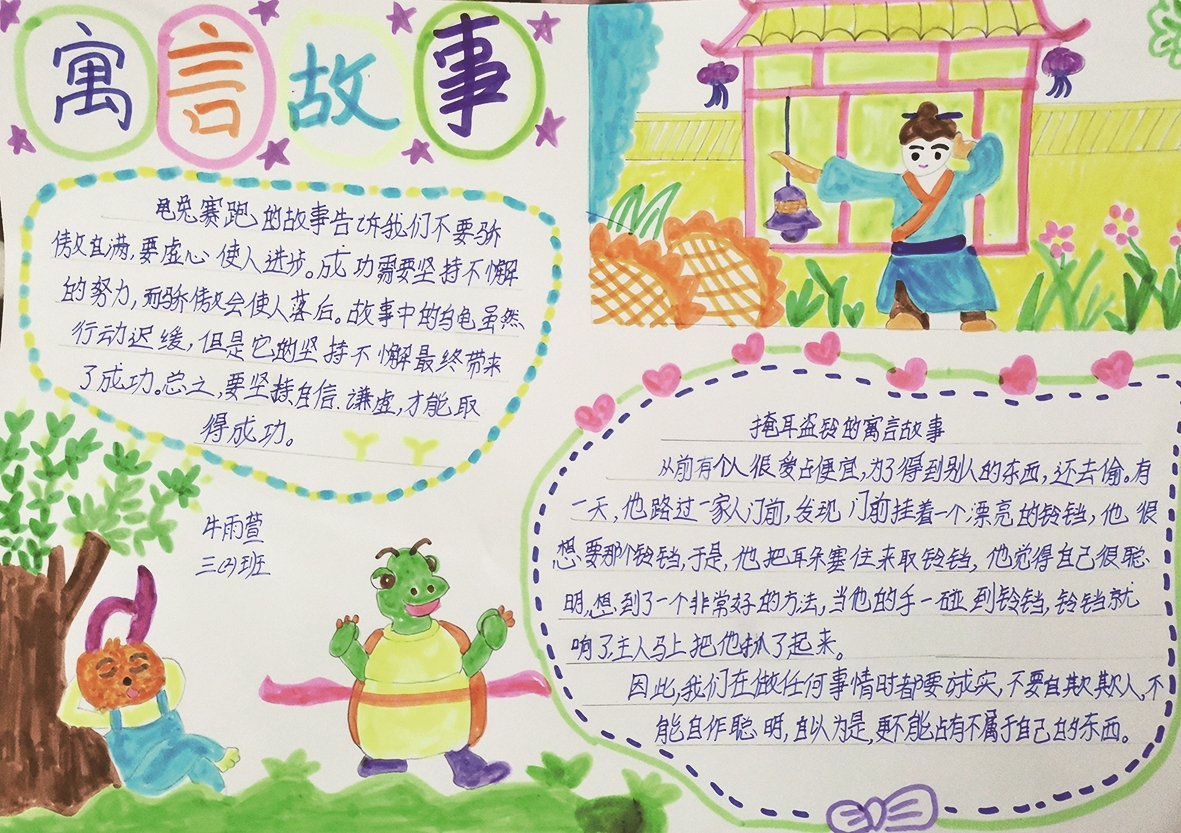 寓言故事
龟兔赛跑的故事告诉我们不要骄
傲自满,要虚心使人进步。成功需要坚持不懈
的努力,而骄傲会使人落后。故事中的乌龟虽然
行动迟缓,但是它的坚持不懈最终带来
了成功。总之,要坚持自信、谦虚,才能取
得成功。
牛雨萱
三(2)班
掩耳盗铃的寓言故事
从前有个人很爱占便宜,为了得到别人的东西,还去偷。有
一天,他路过一家人门前,发现门前挂着一个漂亮的铃铛,他很
想要那个铃铛,于是,他把耳朵塞住来取铃铛,他觉得自己很聪
明,想到了一个非常好的方法,当他的手一碰到铃铛,铃铛就
响了,主人马上把他抓了起来。
因此,我们在做任何事情时都要诚实,不要自欺欺人,不
能自作聪明,自以为是,更不能占有不属于自己的东西。